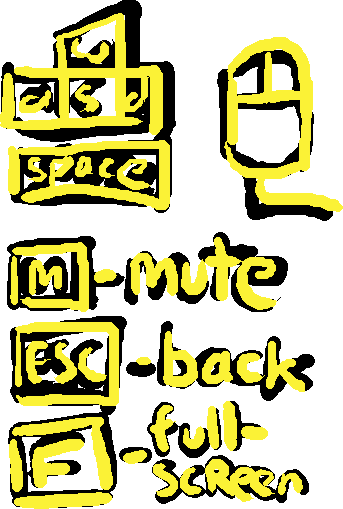 w
a s d
space
M - mute
ESC - back
F - full-
screen